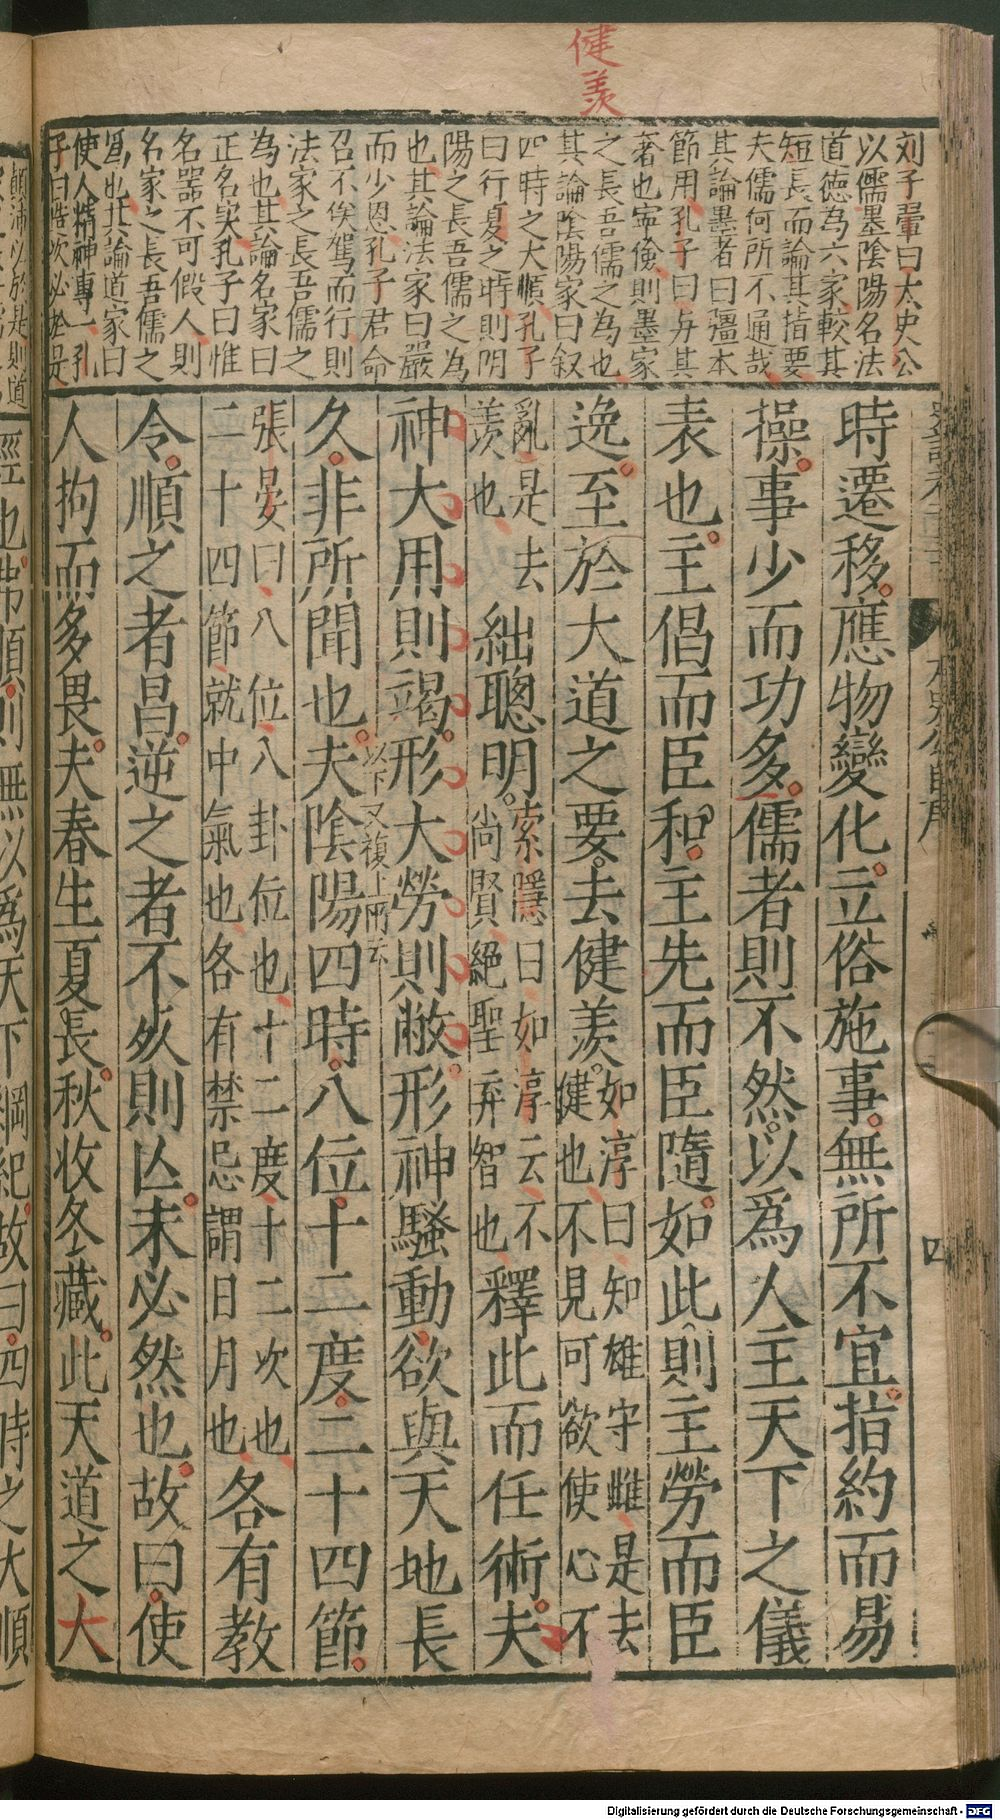 健羡
刘子翬曰太史公
以儒墨陰陽名法
道德為六家較其
短長而論其指要
夫儒何所不通哉
其論墨者曰彊本
節用孔子曰与其
奢也寧儉則墨家
之長吾儒之為也
其論陰陽家曰叙
四時之大順孔子
曰行夏之時則阴
陽之長吾儒之為
也其論法家曰嚴
而少恩孔子君命
召不俟駕而行則
法家之長吾儒之
為也其論名家曰
正名实孔子曰惟
名器不可假人則
名家之長吾儒之
為也其論道家曰
使人精神專一孔
子曰造次必於是
時遷移應物變化立俗施事無所不宜指約而易
操事少而功多儒者則不然以爲人主天下之儀
表也主倡而臣和主先而臣隨如此則主勞而臣
逸至於大道之要去健羨如淳曰知雄守雌是去健也不見可欲使心不
亂是去羨也絀聰明索隱曰如淳云不尚賢絕聖弃智也釋此而任術夫
神大用則竭形大勞則敝形神騷動欲與天地長
久非所聞也夫陰陽四時八位十二度二十四節
以下又複上兩云
張晏曰八位八卦位也十二度十二次也二十四節就中氣也各有禁忌謂日月也各有教
令順之者昌逆之者不死則亾未必然也故曰使
人拘而多畏夫春生夏長秋收冬藏此天道之大
經也弗順則無以爲天下綱紀故曰四時之大順
顛沛必於是則道
四
Digitalisierung gefördert durch die Deutsche Forschungsgemeinschaft - DFG